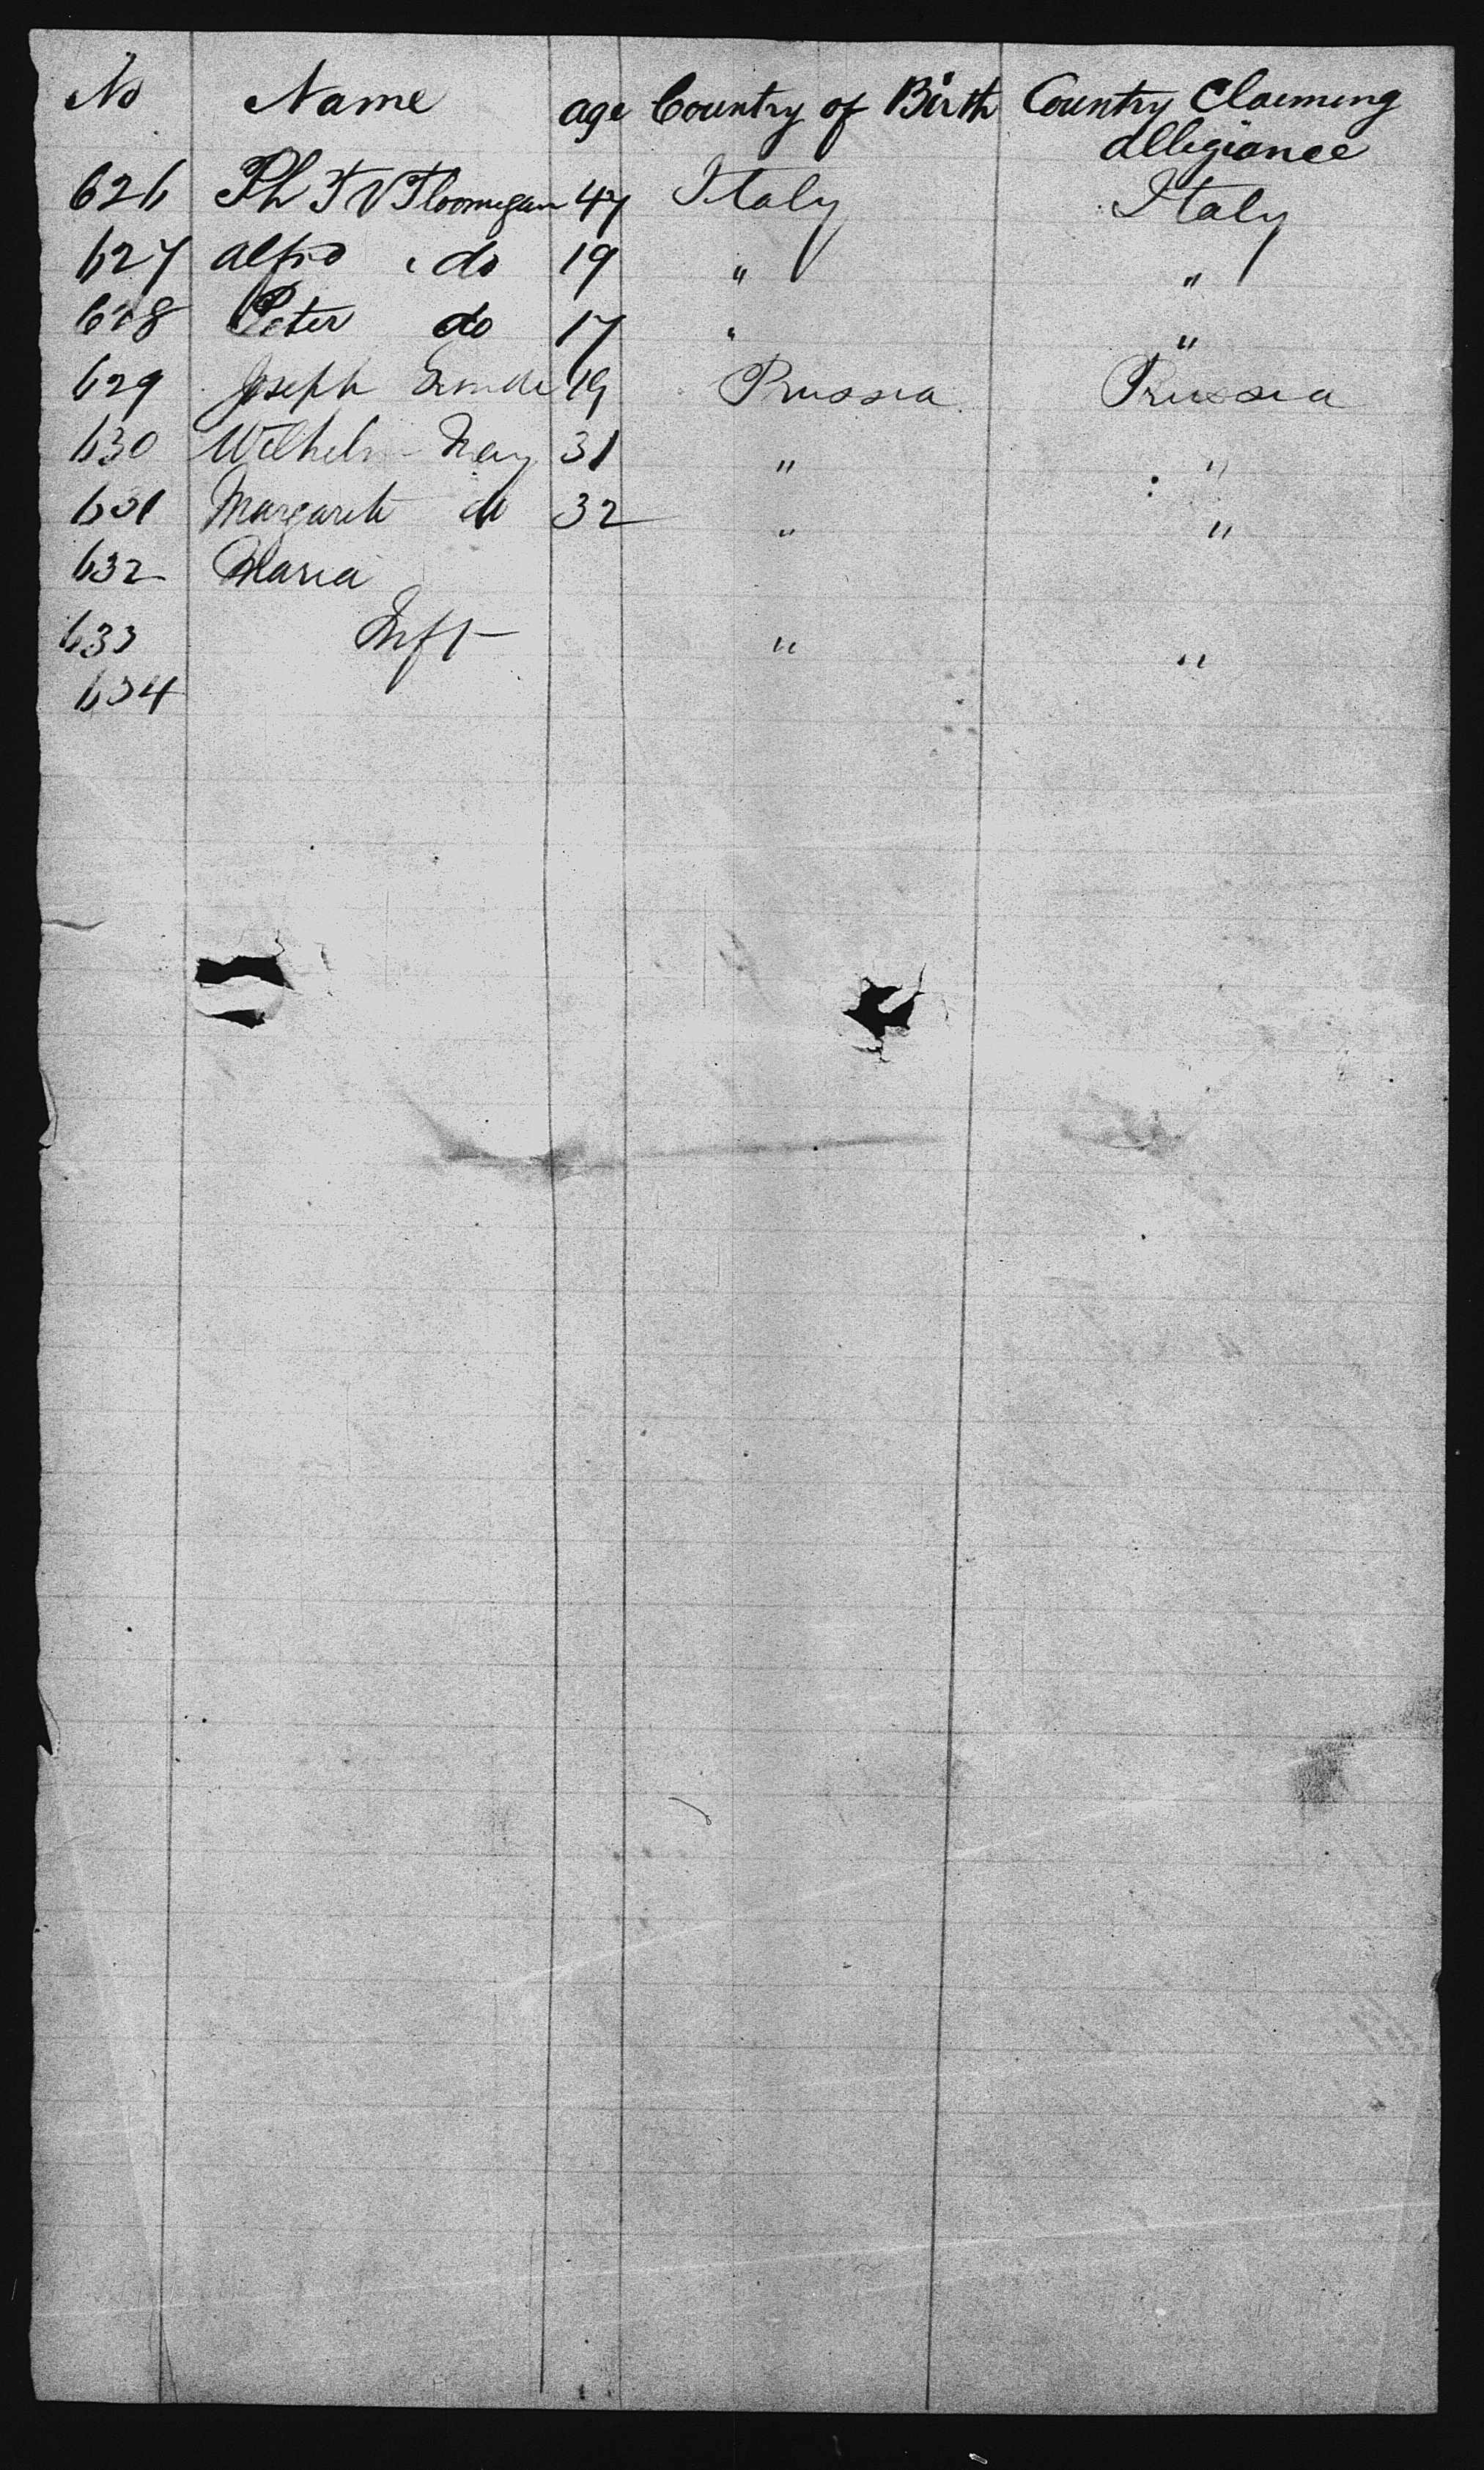 No Name age Country of Birth Country Claiming
allegiance
626 Ph F V 47 Italy Italy
627 Alfrd do 19 " "
628 Peter do 17 " "
629 Joseph 19 Prussia Prussia
630 Wilhelm 31 " "
631 Margareta do 32 " "
632 Maria
633 Inft " "
634